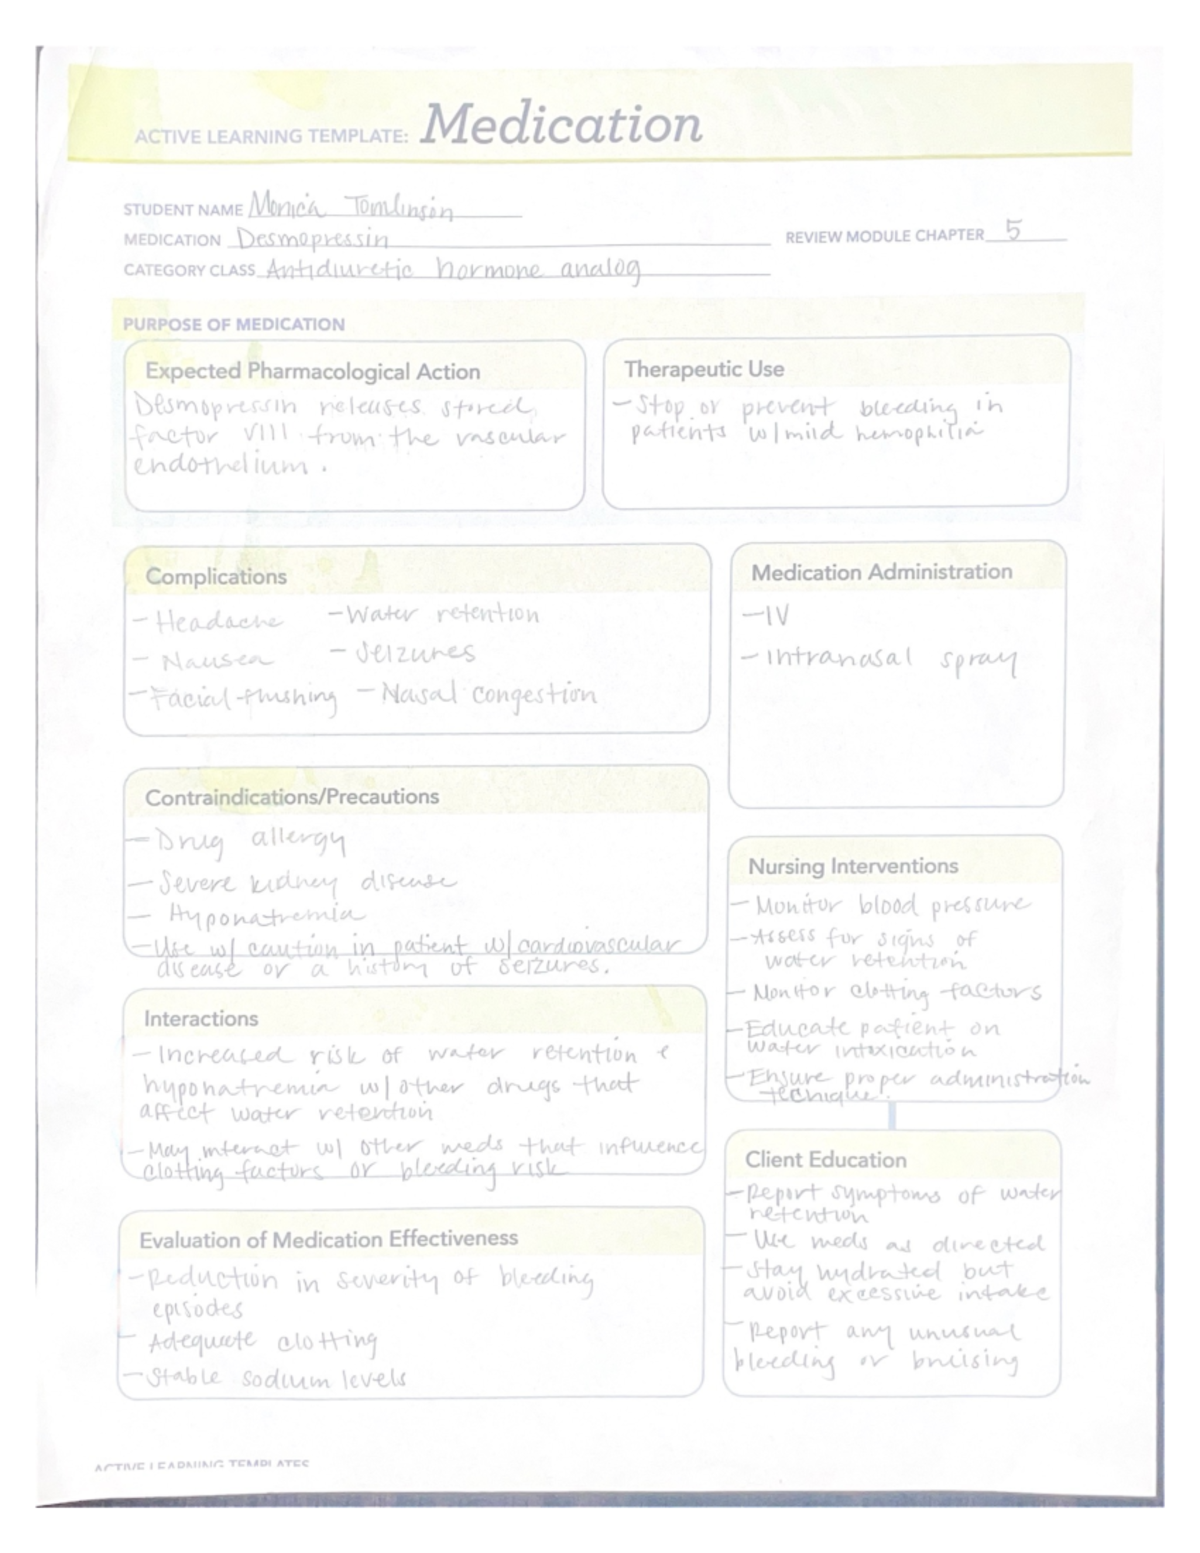 ACTIVE LEARNING TEMPLATE: Medication
STUDENT NAME Monica Tomlinson
MEDICATION Desmopressin
REVIEW MODULE CHAPTER 5
CATEGORY CLASS Antidiuretic hormone analog
PURPOSE OF MEDICATION
Expected Pharmacological Action
Desmopressin releases stored
factor VIII from the vascular
endothelium.
Therapeutic Use
- Stop or prevent bleeding in
patients w/mild hemophilia
Complications
- Headache - Water retention
- Nausea - Seizures
- Facial flushing - Nasal congestion
Medication Administration
- IV
- Intranasal spray
Contraindications/Precautions
- Drug allergy
- Severe kidney disease
- Hyponatremia
- Use w/ caution in patient w/cardiovascular
disease or a history of seizures.
Nursing Interventions
- Monitor blood pressure
- Assess for signs of
water retention
- Monitor clotting factors
- Educate patient on
water intoxication
- Ensure proper administration
technique.
Interactions
- Increased risk of water retention &
hyponatremia w/other drugs that
affect water retention
- May interact w/ other meds that influence
clotting factors or bleeding risk
Client Education
- Report symptoms of water
retention
- Use meds as directed
- Stay hydrated but
avoid excessive intake
- Report any unusual
bleeding or bruising
Evaluation of Medication Effectiveness
- Reduction in severity of bleeding
episodes
- Adequate clotting
- Stable sodium levels
ACTIVE LEARNING TEMPLATES